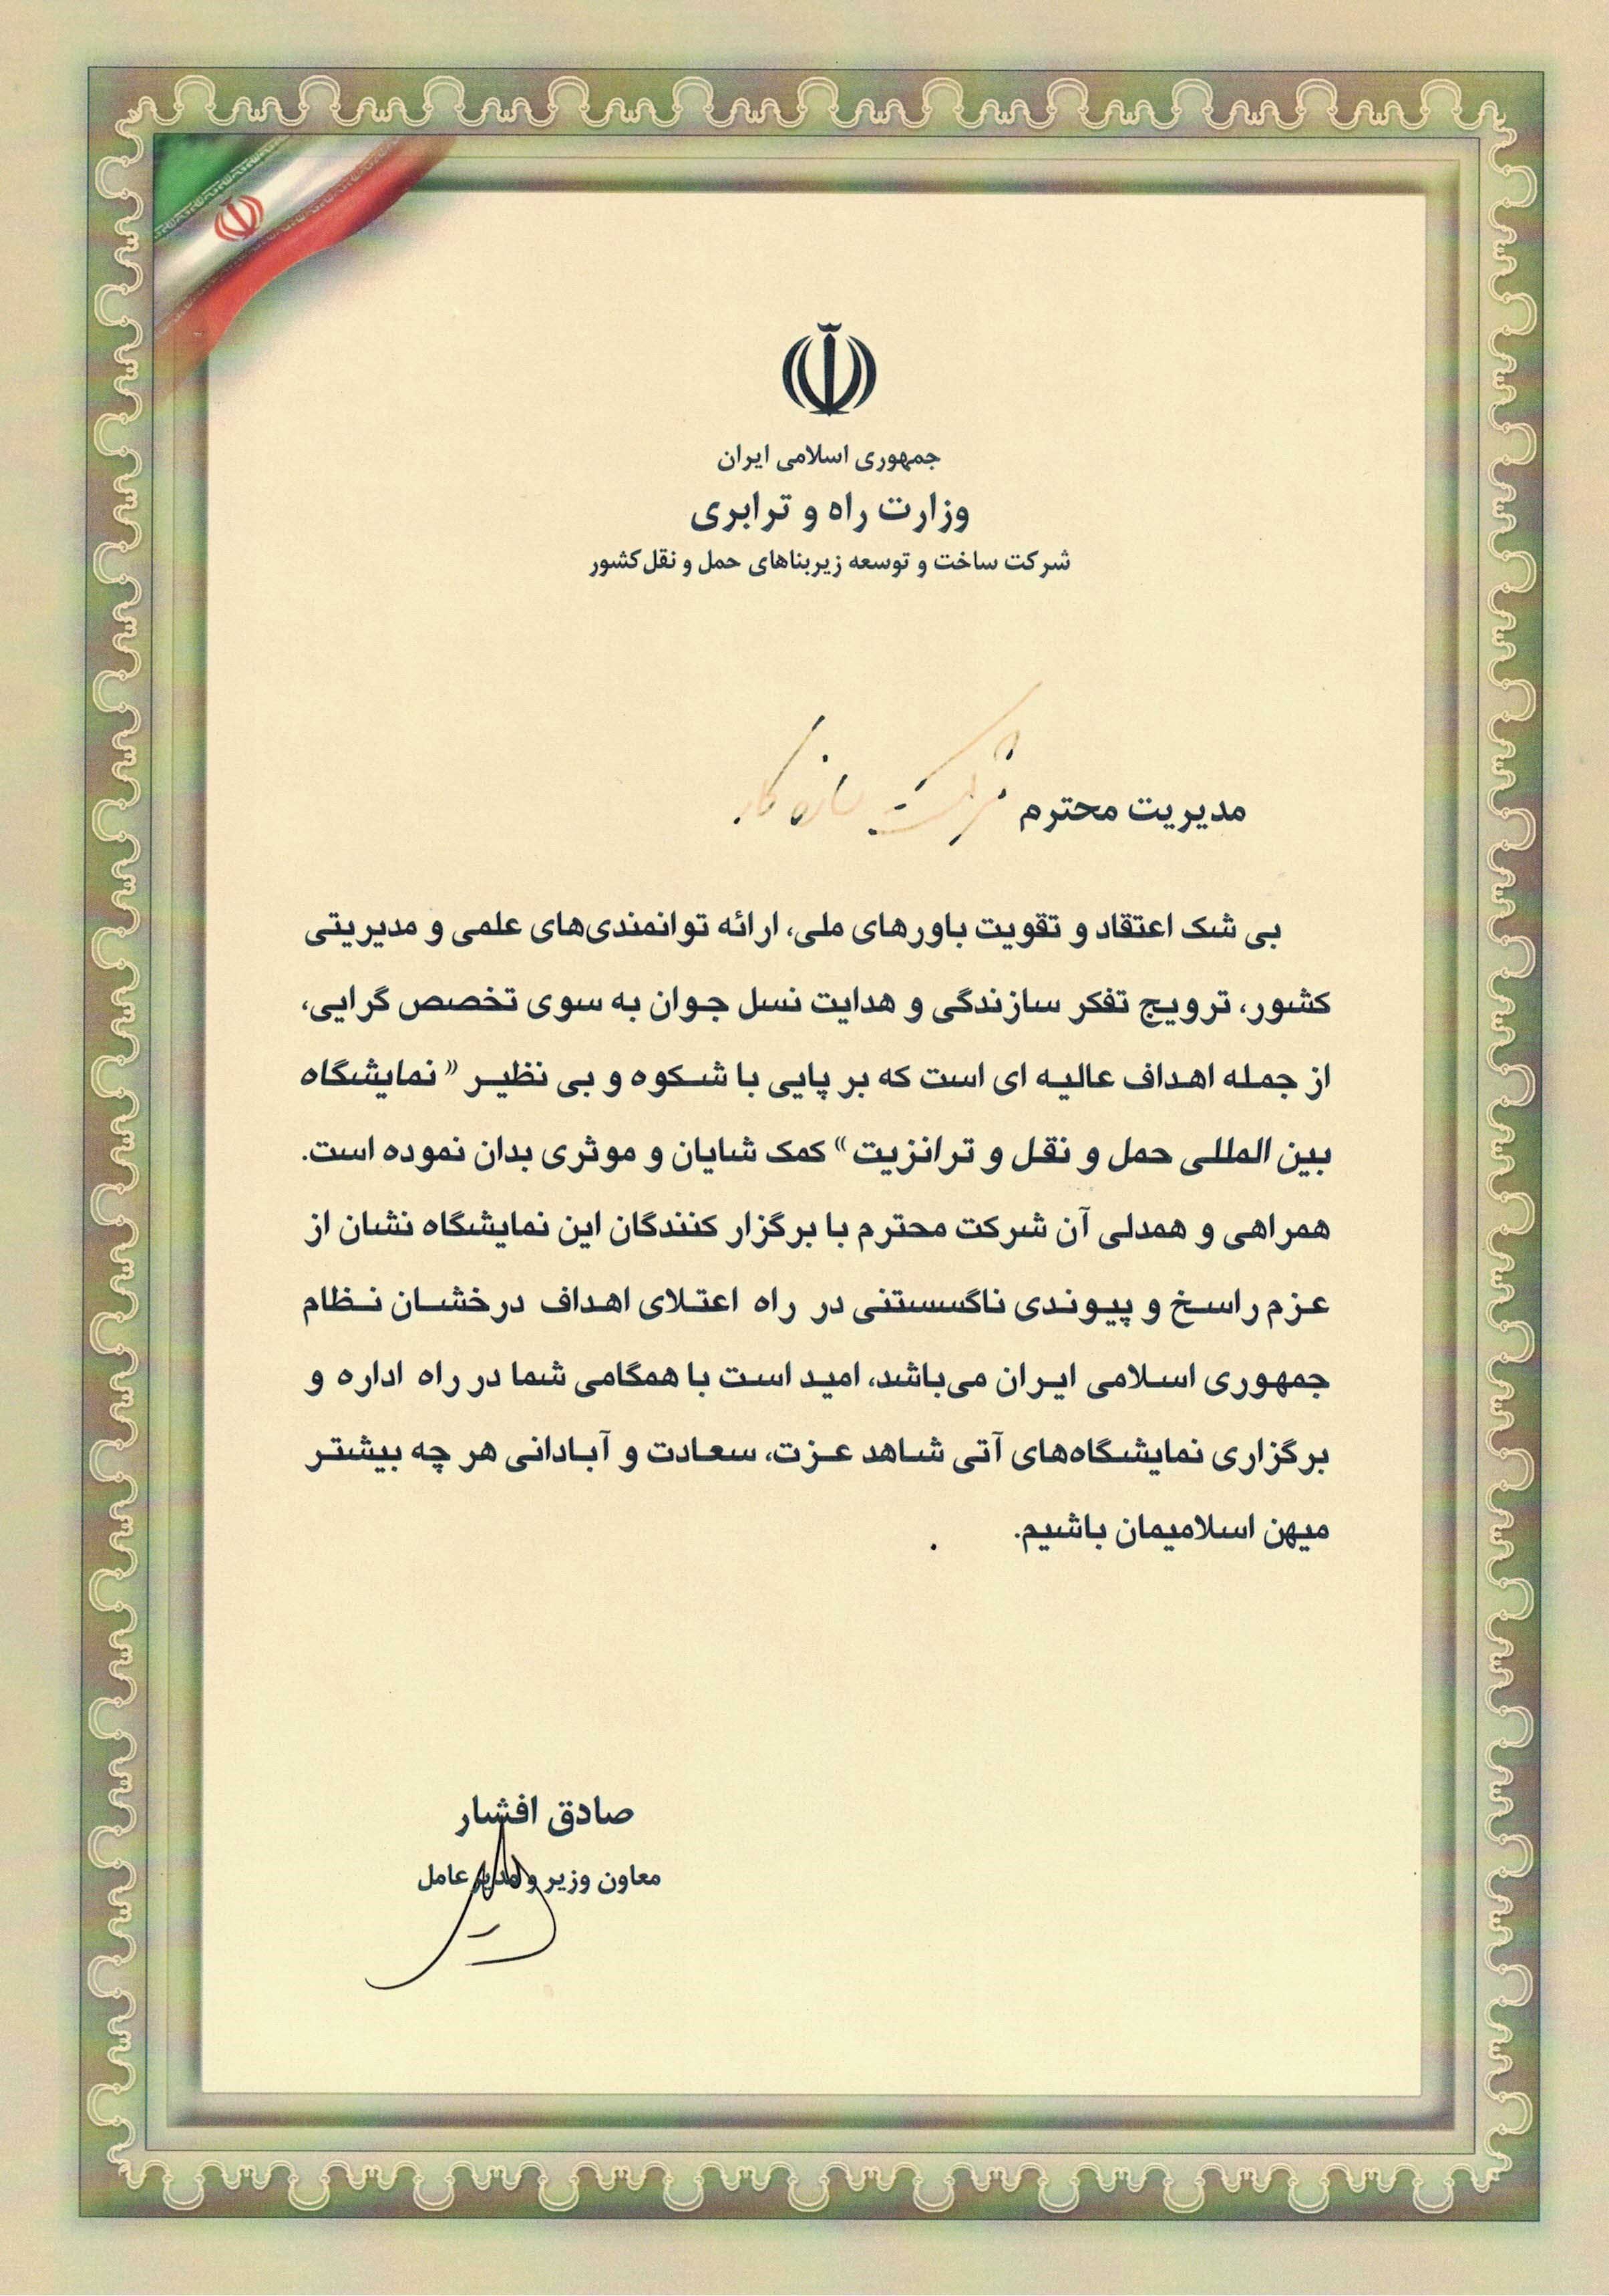 جمهوری اسلامی ایران
وزارت راه و ترابری
شرکت ساخت و توسعه زیربناهای حمل و نقل کشور
مدیریت محترم شرکت سازه کار
بی شک اعتقاد و تقویت باورهای ملی، ارائه توانمندی‌های علمی و مدیریتی
کشور، ترویج تفکر سازندگی و هدایت نسل جوان به سوی تخصص گرایی،
از جمله اهداف عالیه ای است که بر پایی با شکوه و بی نظیر «نمایشگاه
بین المللی حمل و نقل و ترانزیت» کمک شایان و موثری بدان نموده است.
همراهی و همدلی آن شرکت محترم با برگزار کنندگان این نمایشگاه نشان از
عزم راسخ و پیوندی ناگسستنی در راه اعتلای اهداف درخشان نظام
جمهوری اسلامی ایران می‌باشد، امید است با همگامی شما در راه اداره و
برگزاری نمایشگاه‌های آتی شاهد عزت، سعادت و آبادانی هر چه بیشتر
میهن اسلامیمان باشیم.
صادق افشار
معاون وزیر و مدیر عامل